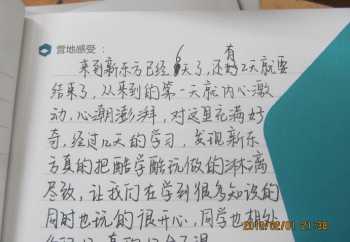 营地感受：
来到新东方已经8天了，还有2天就要
结束了，从来到的第一天就内心激
动，心潮澎湃，对这里充满好
奇，经过几天的学习，发现新东
方真的把酷学酷玩做的淋漓
尽致，让我们在学到很多知识的
同时也玩的很开心，同学也相处
21:38